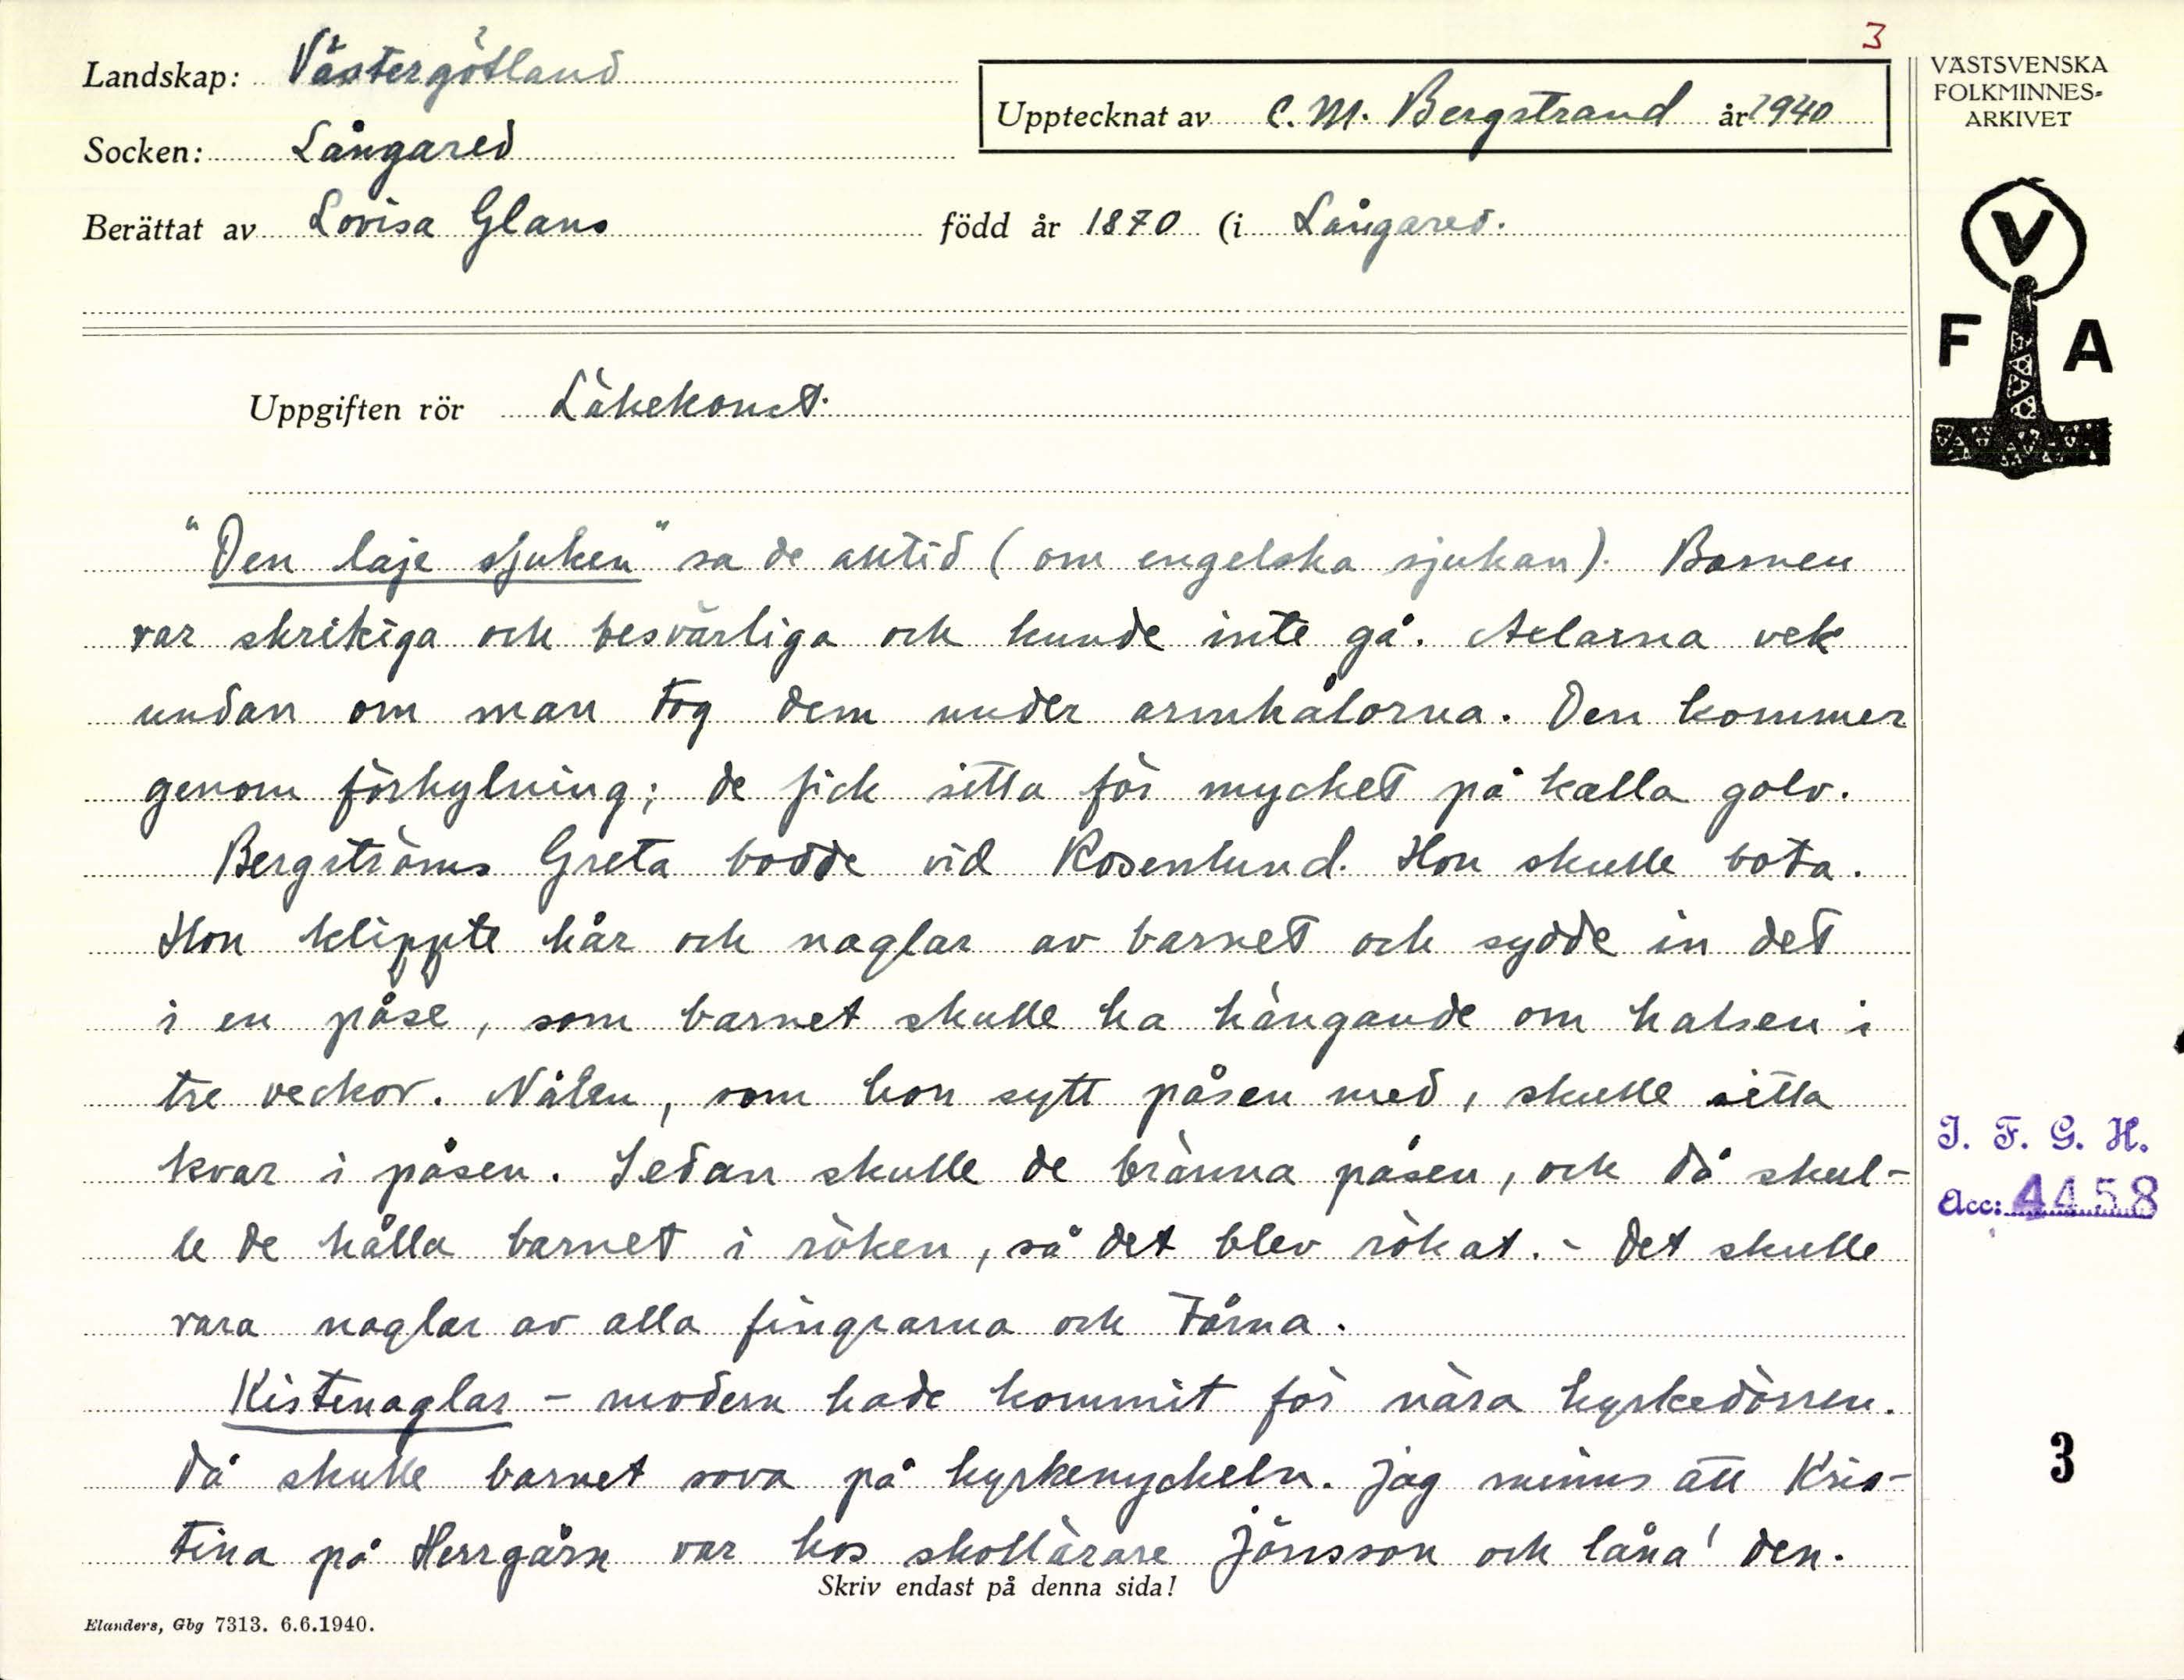 3
Landskap: Västergötland
Upptecknat av C. M. Bergstrand år 1940
Socken: Långared
Berättat av Lovisa Glans född år 1870 (i Långared.
VÄSTSVENSKA
FOLKMINNES-
ARKIVET
V
F A
Uppgiften rör Läkekonst.
"Den laje sjuken" sa de alltid (om engelska sjukan). Barnen
var skrikiga och besvärliga och kunde inte gå. Axlarna vek
undan om man tog dem under armhålorna. Den kommer
genom förkylning; de fick sitta för mycket på kalla golv.
Bergströms Greta bodde vid Rosenlund. Hon skulle bota.
Hon klippte hår och naglar av barnet och sydde in det
i en påse, som barnet skulle ha hängande om halsen i
tre veckor. Nålen, som hon sytt påsen med, skulle sitta
kvar i påsen. Sedan skulle de bränna påsen, och då skul-
le de hålla barnet i röken, så det blev rökat. - Det skulle
vara naglar av alla fingrarna och tårna.
Kistenaglar - modern hade kommit för nära kyrkedörren.
Då skulle barnet sova på kyrkenyckeln. Jag minns att Kris-
tina på Herrgårn var hos skollärare Jönsson och låna' den.
Skriv endast på denna sida!
Elanders, Gbg 7313. 6.6.1940.
I. F. G. H.
Acc: 4458
3